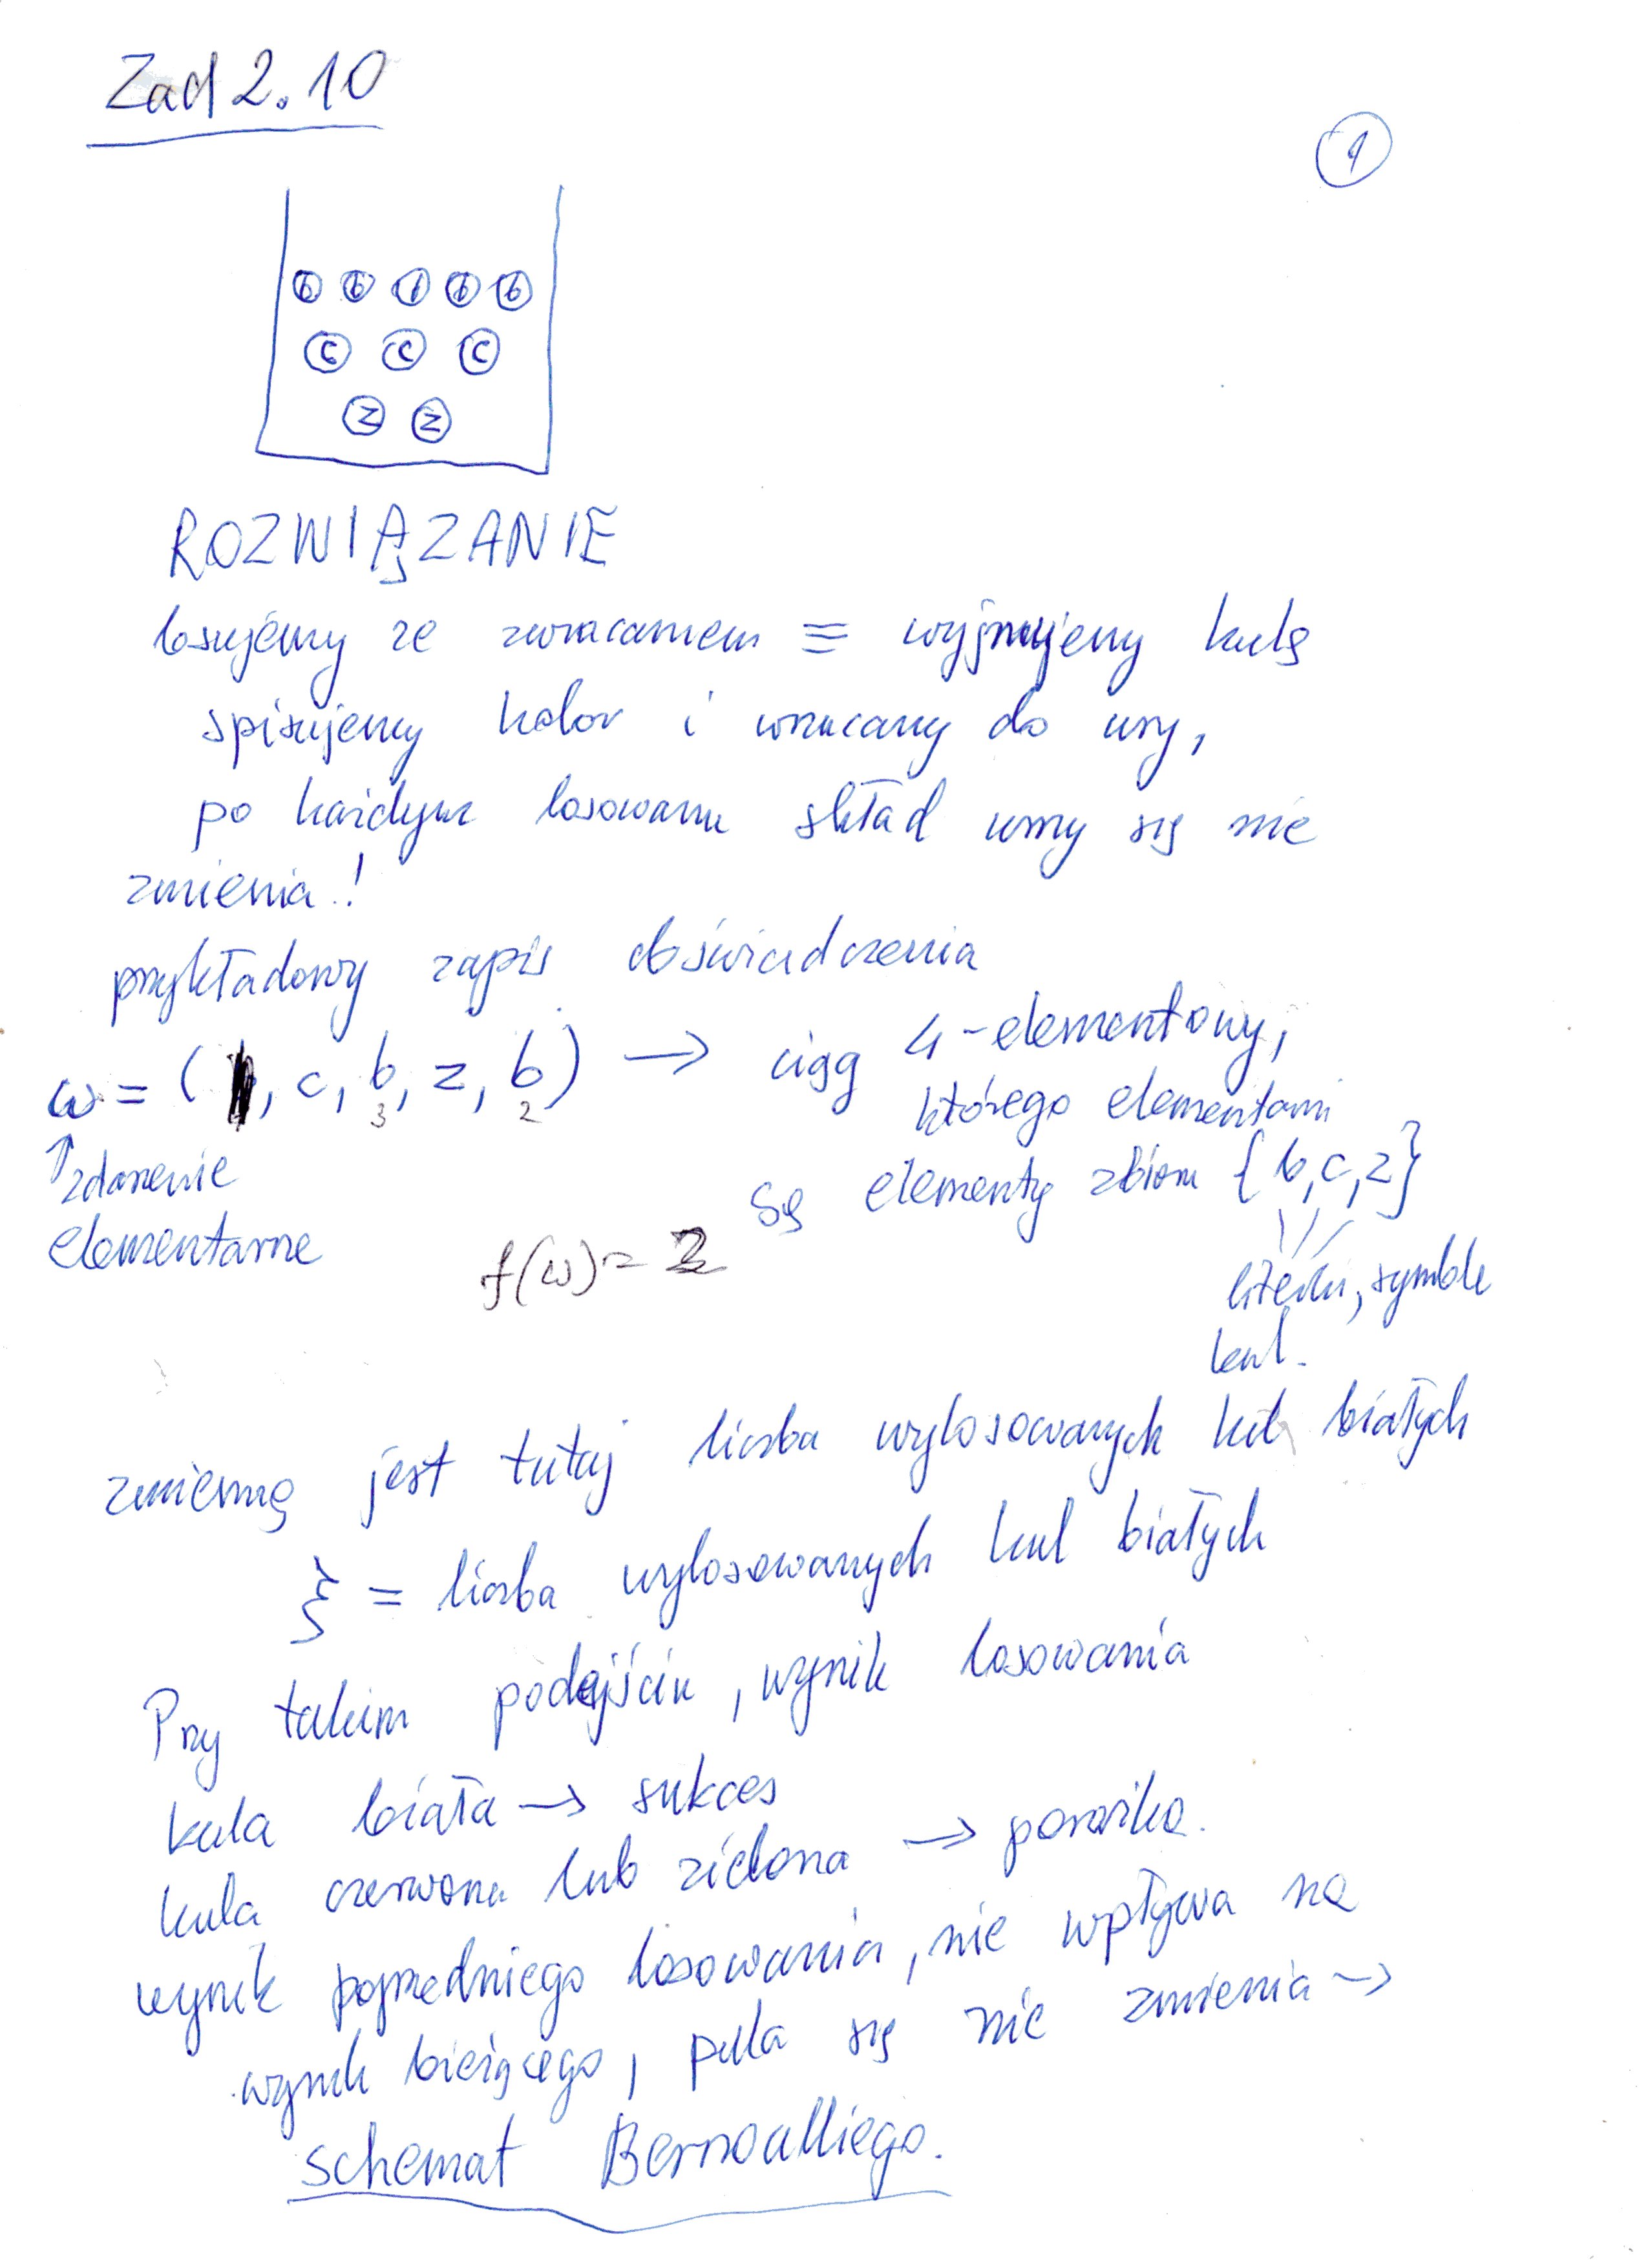 Zad 2.10
1
b b b b b
c c c
z z
ROZWIĄZANIE
losujemy ze zwracaniem ≡ wyjmujemy kulę
spisujemy kolor i wrzucamy do urny,
po każdym losowaniu skład urny się nie
zmienia!
przykładowy zapis doświadczenia
ω = ( , c, b, z, b) → ciąg 4-elementowy,
3 2
którego elementami
↑ zdarzenie
są elementy zbioru {b, c, z}
elementarne
f(ω) = 2
literki, symbole
kul.
zmienną jest tutaj liczba wylosowanych kul białych
ξ = liczba wylosowanych kul białych
Przy takim podejściu, wynik losowania
kula biała → sukces
kula czerwona lub zielona → porażka.
wynik poprzedniego losowania, nie wpływa na
wynik bieżącego, pula się nie zmienia →
schemat Bernoulliego.